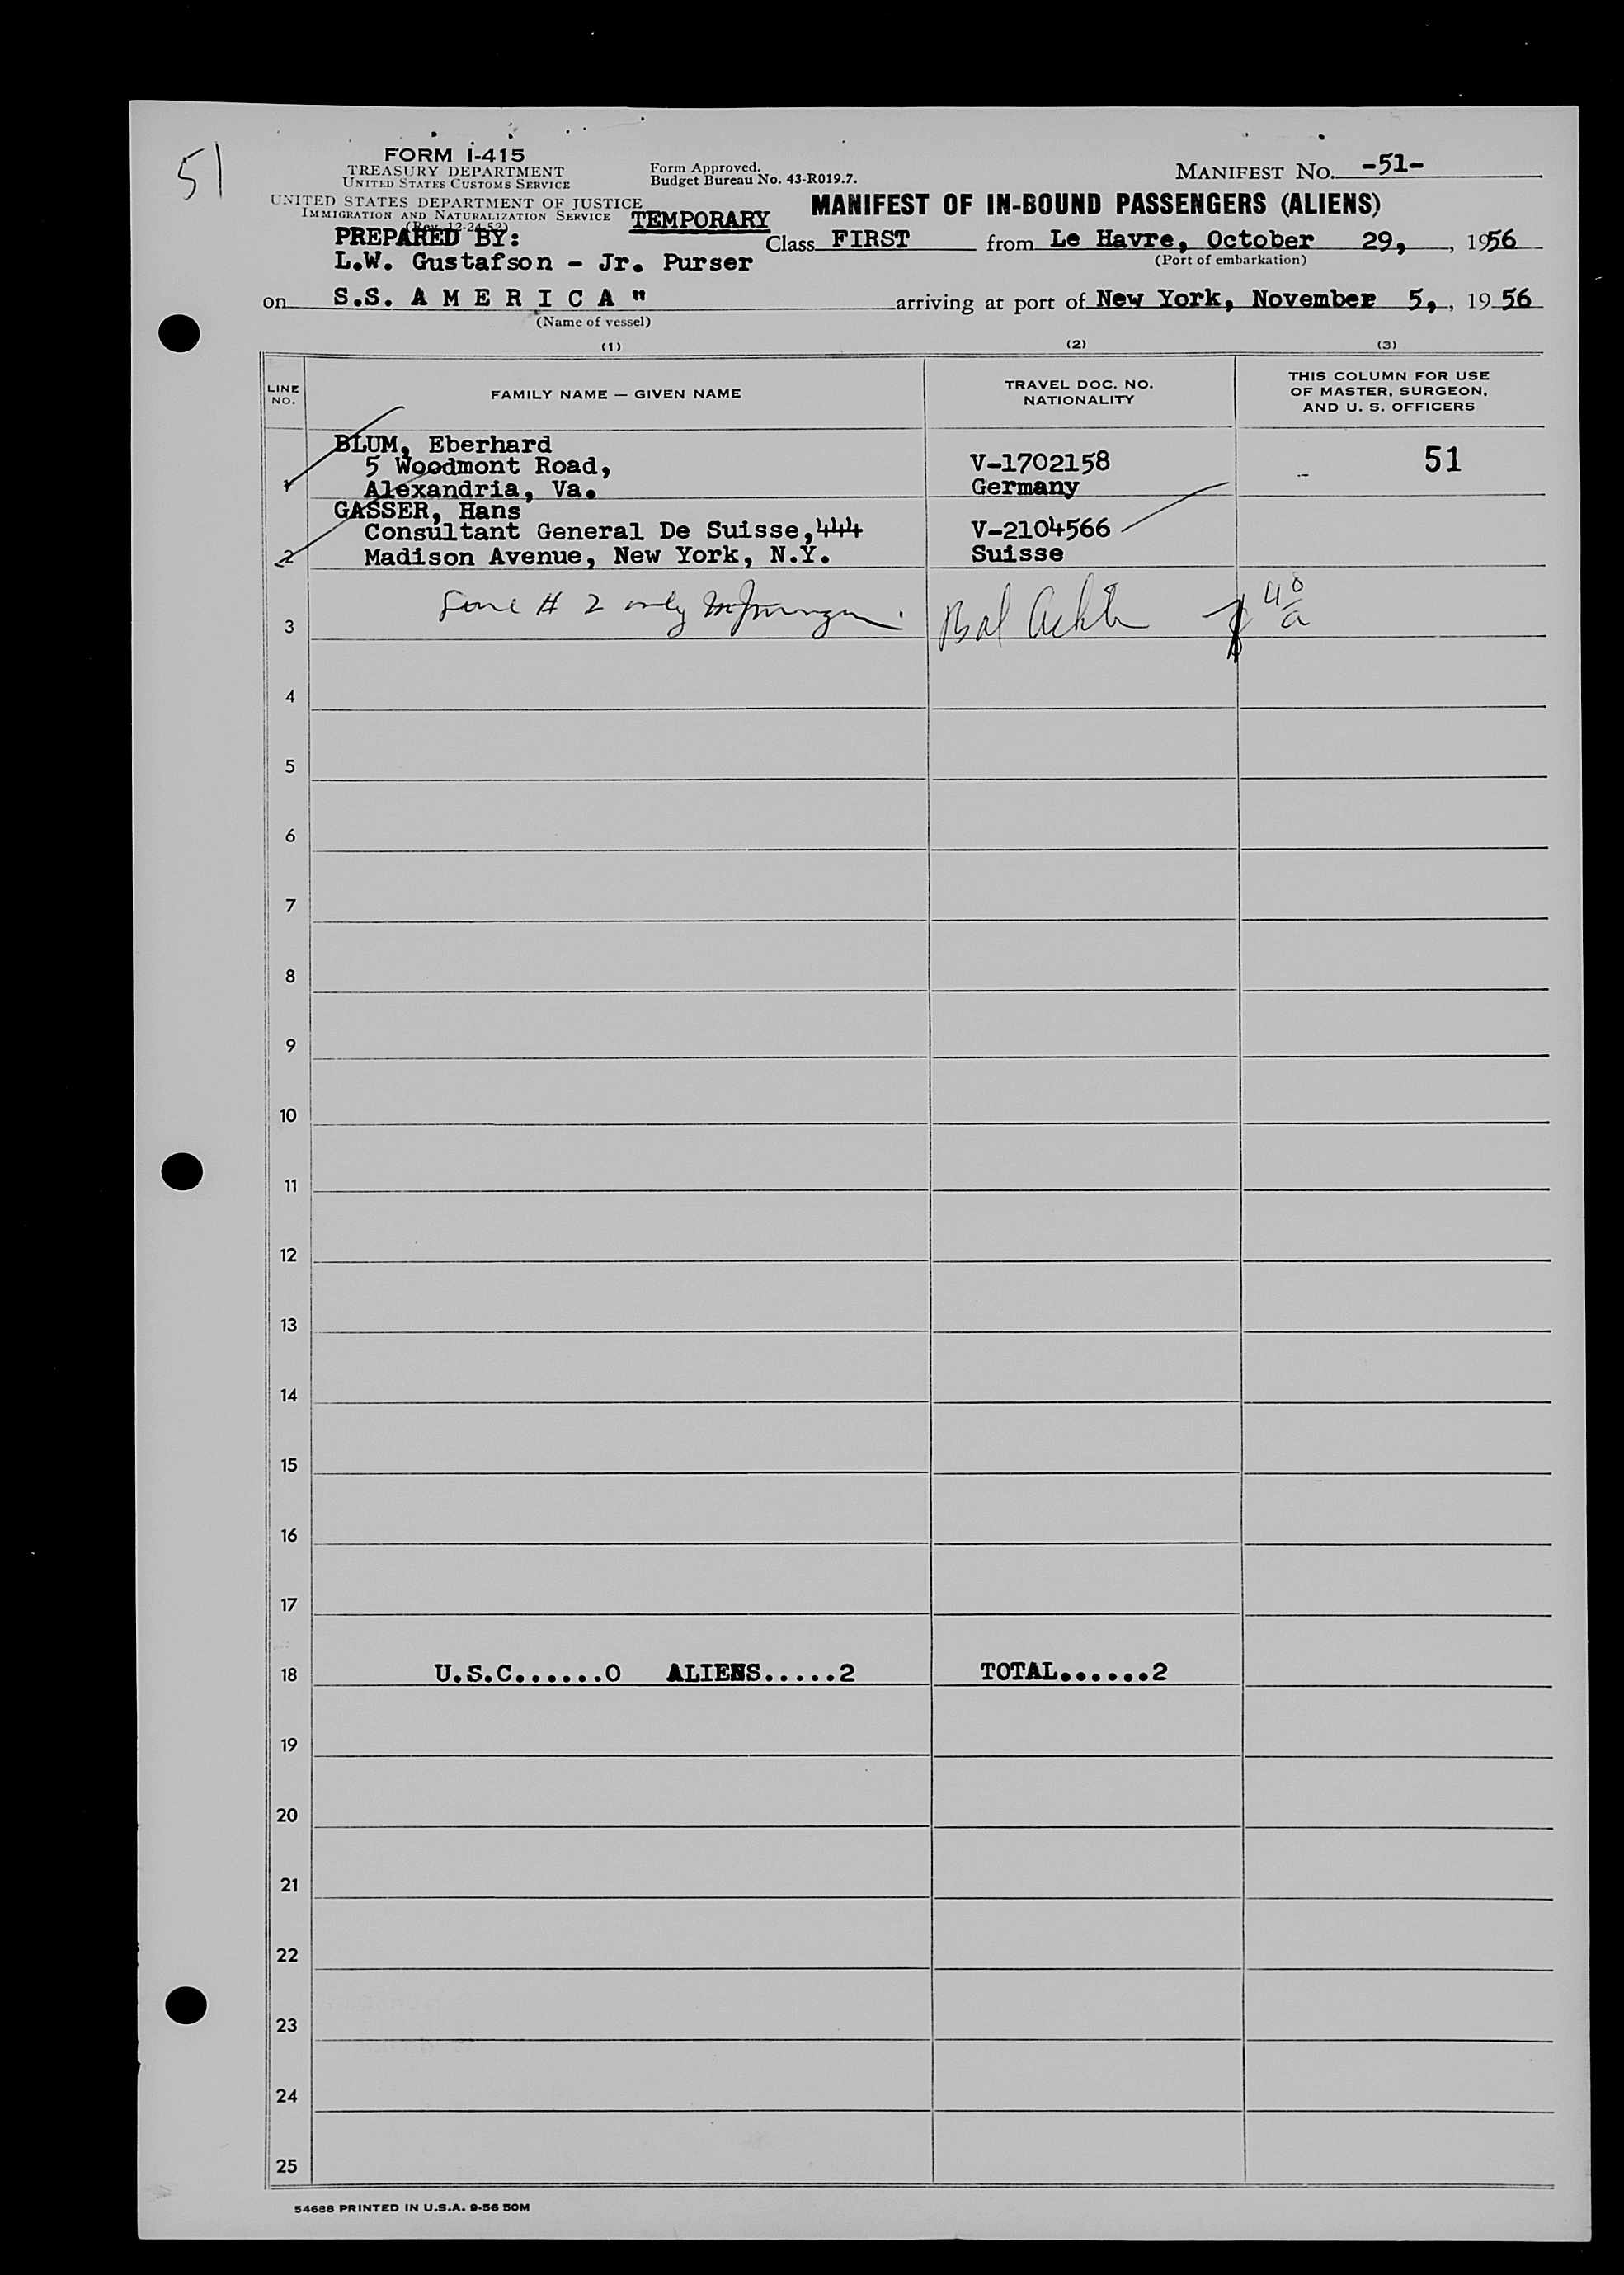 51
FORM I-415
TREASURY DEPARTMENT
UNITED STATES CUSTOMS SERVICE
UNITED STATES DEPARTMENT OF JUSTICE
IMMIGRATION AND NATURALIZATION SERVICE
(Rev. 12-24-52)
Form Approved.
Budget Bureau No. 43-R019.7.
MANIFEST NO. -51-
TEMPORARY
MANIFEST OF IN-BOUND PASSENGERS (ALIENS)
PREPARED BY:
L.W. Gustafson - Jr. Purser
Class FIRST from Le Havre, October 29, , 1956
(Port of embarkation)
on S.S. A M E R I C A " arriving at port of New York, November 5, , 1956
(Name of vessel)
(1) (2) (3)
LINE NO.
FAMILY NAME — GIVEN NAME
TRAVEL DOC. NO.
NATIONALITY
THIS COLUMN FOR USE
OF MASTER, SURGEON,
AND U. S. OFFICERS
BLUM, Eberhard
5 Woodmont Road, V-1702158 51
1 Alexandria, Va. Germany -
GASSER, Hans
Consultant General De Suisse,444 V-2104566
2 Madison Avenue, New York, N.Y. Suisse
3 # 2 only Bal
4
5
6
7
8
9
10
11
12
13
14
15
16
17
18 U.S.C......0 ALIENS.....2 TOTAL......2
19
20
21
22
23
24
25
54688 PRINTED IN U.S.A. 9-56 50M